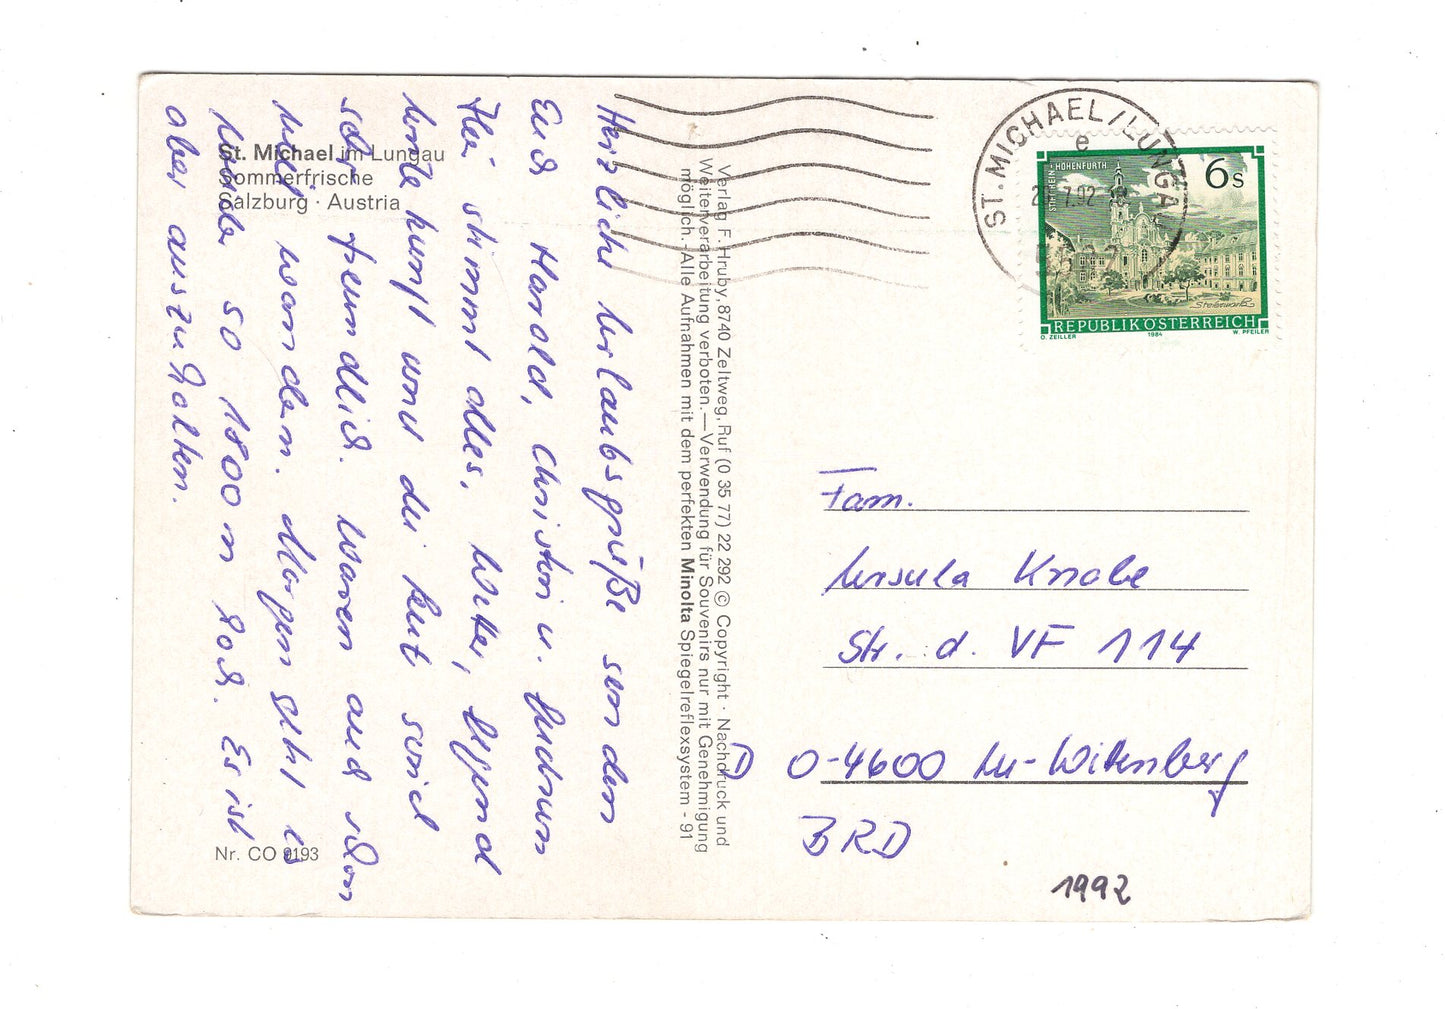 St. Michael im Lungau
Sommerfrische
Salzburg · Austria
Herzliche Urlaubsgrüße senden
Euch Harald, Christin u. Gudrun
Hier stimmt alles, Wetter, Gegend
Unterkunft und die Leut sind
sehr freundlich. Waren auch schon
viel wandern. Morgen geht es
wieder so 1800 m hoch. Es ist
aber auszuhalten.
Nr. CO 9193
Verlag F. Hruby, 8740 Zeltweg, Ruf (0 35 77) 22 292 © Copyright · Nachdruck und
Weiterverarbeitung verboten. — Verwendung für Souvenirs nur mit Genehmigung
möglich. - Alle Aufnahmen mit dem perfekten Minolta Spiegelreflexsystem - 91
ST. MICHAEL/LUNGAU
e
7.92
STIFT RHEIN-HOHENFURTH
6 S
REPUBLIK ÖSTERREICH
O. ZEILLER 1984 W. PFEILER
Fam.
Ursula Knabe
Str. d. VF 114
D O-4600 Lu-Wittenberg
BRD
1992